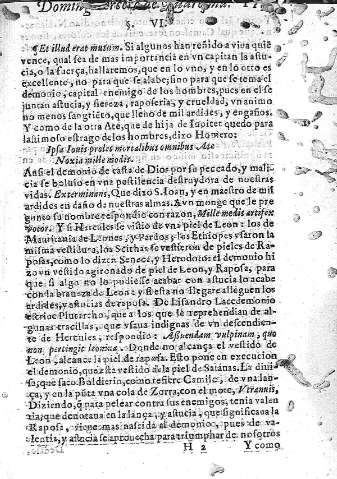 §. VI.
Et illud erat mutum. Si algunos han reñido a viua quiē
vence, qual sea de mas importancia en vn capitan la astu-
cia, o la fuerça, hallaremos, que en lo vno, y en lo otro es
excellente, no para que se alabe, sino para que se tema el
demonio, capital enemigo de los hombres, pues en el se
juntan astucia, y fiereza, raposerias, y crueldad, vn animo
no menos sangriēto, que lleno de mil ardides, y engaños.
Y como de la otra Ate, que de hija de Iupiter quedo para
lastimoso estrago de los hombres, dixo Homero:
Ipsa Iouis proles mortalibus omnibus Ate
Noxia mille modis.
Ansi el demonio de casta de Dios por su peccado, y mali-
cia se boluio en vna pestilencia destruydora de nuestras
vidas. Exterminans, Que dixo S. Ioan, y en maestro de mil
ardides en daño de nuestras almas. A vn monge que le pre
gunto su nombre respondio con razon, Mille modis artifex
vocor. Y si Hercules se vistio de vna piel de Leon: los de
Mauritania de Leones, y Pardos, los Ethiopes vsaron la
misma vestidura, los Scithas se vestieron de pieles de Ra-
posas, como lo dizen Seneca, y Herodoto: el demonio hi
zo vn vestido agironado de piel de Leon, y Raposa, para
que si algo no lo pudiesse acabar con astucia lo acabe
con la braueza de Leon: y si esta no llegare alleguen los
ardides, y astucias de raposa. De Lisandro Lacedemonio
escriue Plutarcho, que a los que le reprehendian de al-
gunas tracillas, que vsaua indignas de vn descendien-
te de Hercules, respondio: Assuendam vulpinam, quo
non pertingit leonina. Donde no alcança el vestido de
Leon, alcance la piel de raposa. Esto pone en execucion
el demonio, que esta vestido de la piel de Satanas. La diui-
sa, que saco Balduerin, como refiere Camilo, de vna lan-
ça, y en la pūta vna cola de Zorra, con el mote,
Diziendo, q̄ para pelear contra sus enemigos, tenia valen
tia, que denotaua en la lança, y astucia, que significaua la
Raposa, viene mas nascida al demonio, pues de va-
lentia, y astucia se aprouecha para triumphar de nosotros
H 2 Y como